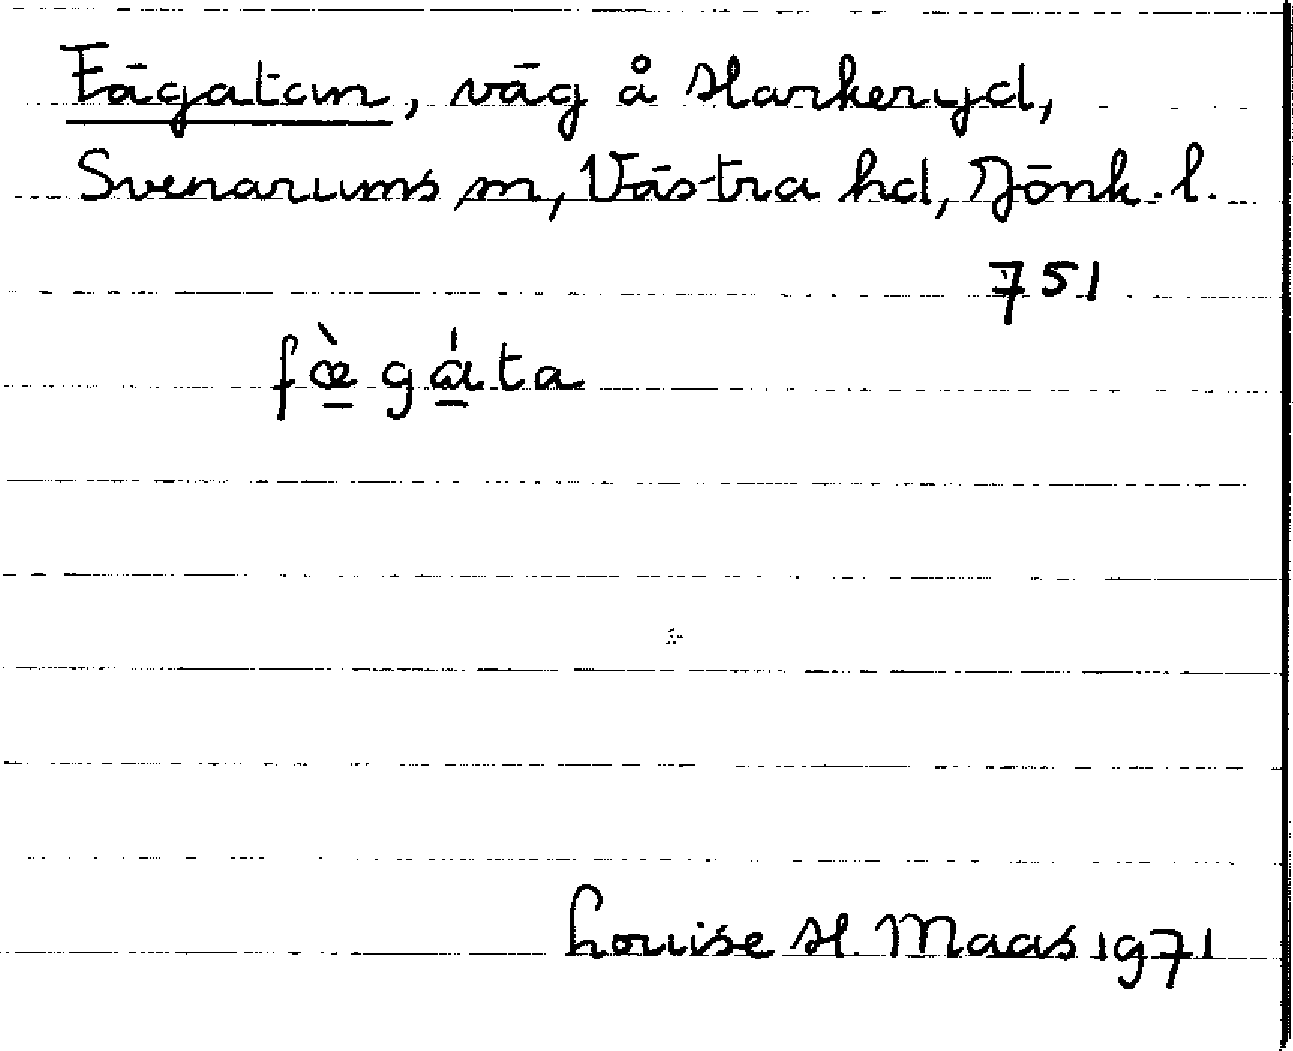 Fägatan, väg å Harkeryd,
Svenarums sn, Västra hd, Jönk. l.
751
fæ̀gáta
Louise H. Maas 1971